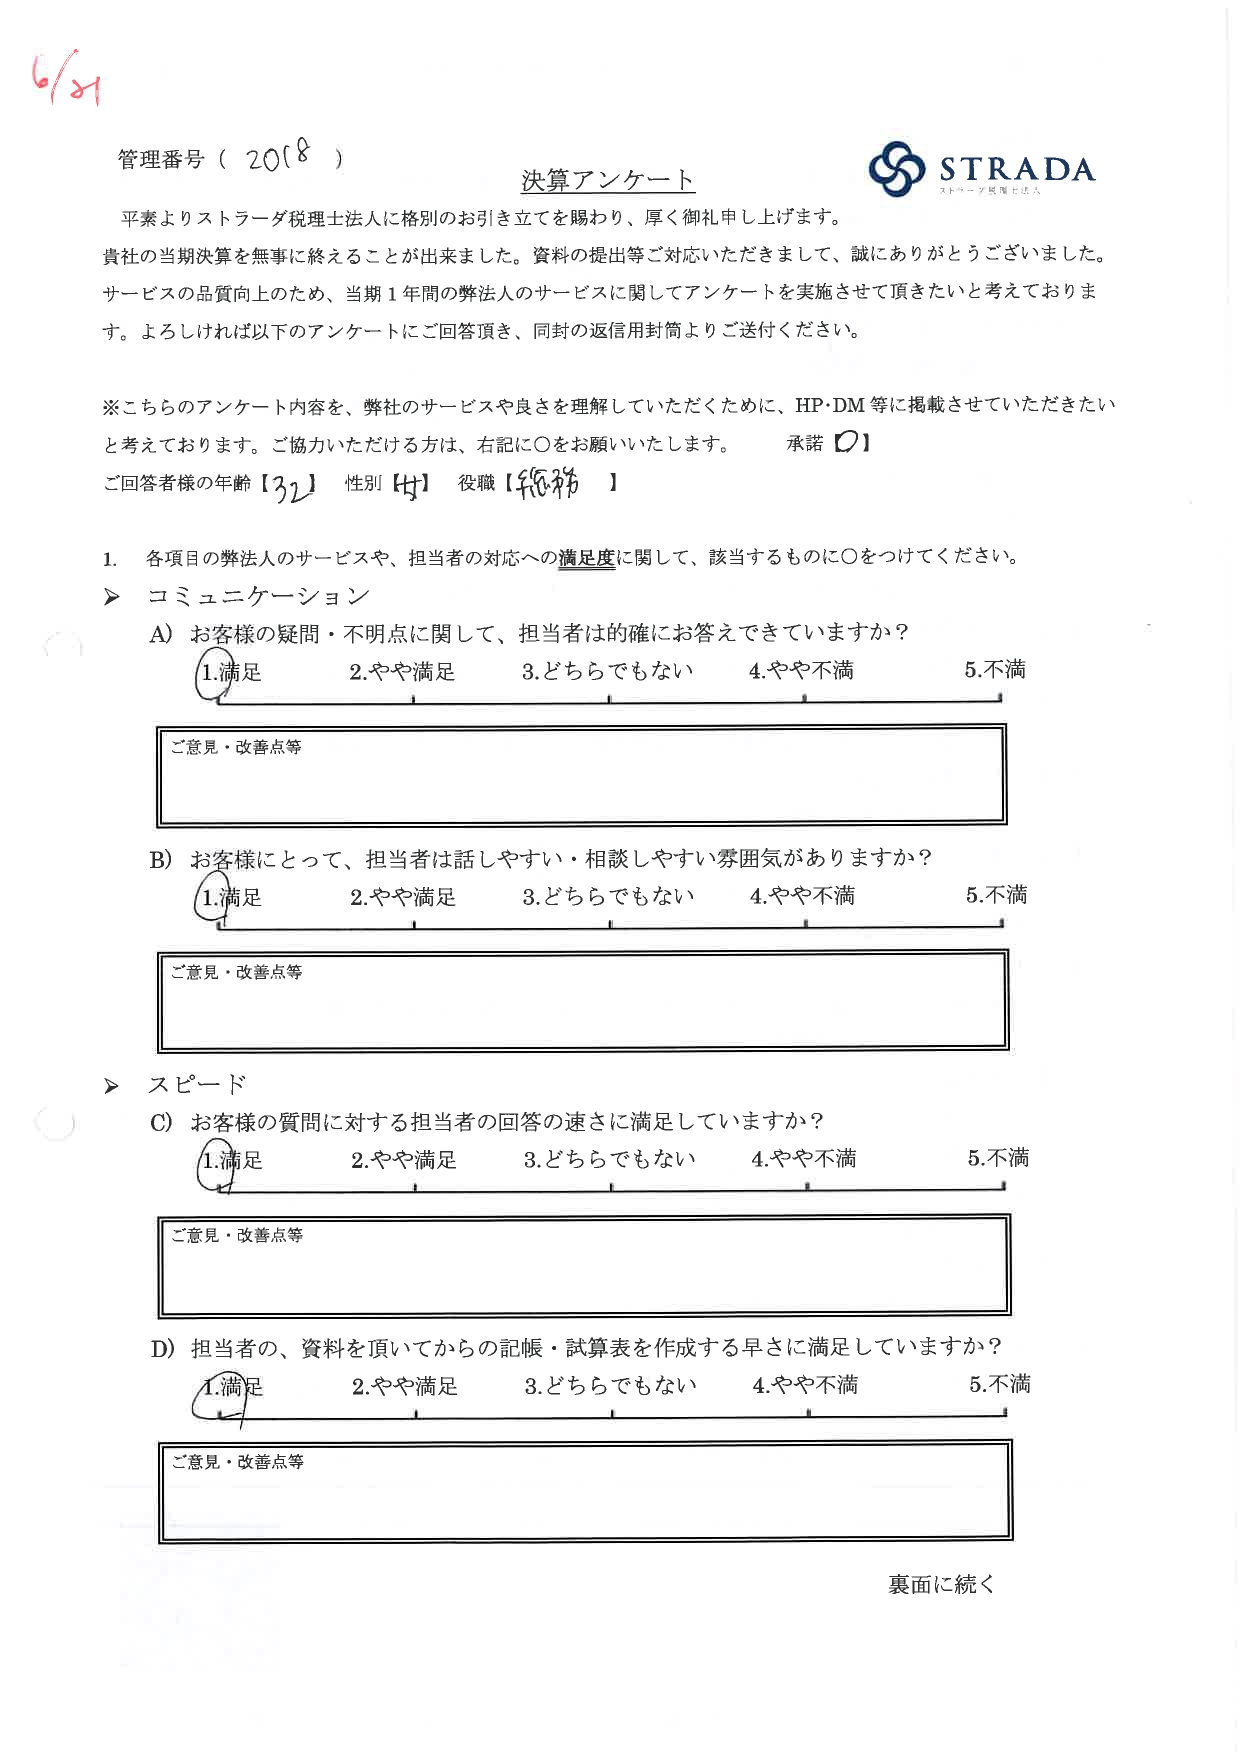 6/21
管理番号（ 2018 ）
STRADA
ストラーダ税理士法人
決算アンケート
平素よりストラーダ税理士法人に格別のお引き立てを賜わり、厚く御礼申し上げます。
貴社の当期決算を無事に終えることが出来ました。資料の提出等ご対応いただきまして、誠にありがとうございました。
サービスの品質向上のため、当期１年間の弊法人のサービスに関してアンケートを実施させて頂きたいと考えておりま
す。よろしければ以下のアンケートにご回答頂き、同封の返信用封筒よりご送付ください。
※こちらのアンケート内容を、弊社のサービスや良さを理解していただくために、HP・DM 等に掲載させていただきたい
と考えております。ご協力いただける方は、右記に〇をお願いいたします。 承諾【〇】
ご回答者様の年齢【32】 性別【女】 役職【総務 】
1. 各項目の弊法人のサービスや、担当者の対応への満足度に関して、該当するものに〇をつけてください。
➢ コミュニケーション
A) お客様の疑問・不明点に関して、担当者は的確にお答えできていますか？
1.満足 2.やや満足 3.どちらでもない 4.やや不満 5.不満
ご意見・改善点等
B) お客様にとって、担当者は話しやすい・相談しやすい雰囲気がありますか？
1.満足 2.やや満足 3.どちらでもない 4.やや不満 5.不満
ご意見・改善点等
➢ スピード
C) お客様の質問に対する担当者の回答の速さに満足していますか？
1.満足 2.やや満足 3.どちらでもない 4.やや不満 5.不満
ご意見・改善点等
D) 担当者の、資料を頂いてからの記帳・試算表を作成する早さに満足していますか？
1.満足 2.やや満足 3.どちらでもない 4.やや不満 5.不満
ご意見・改善点等
裏面に続く